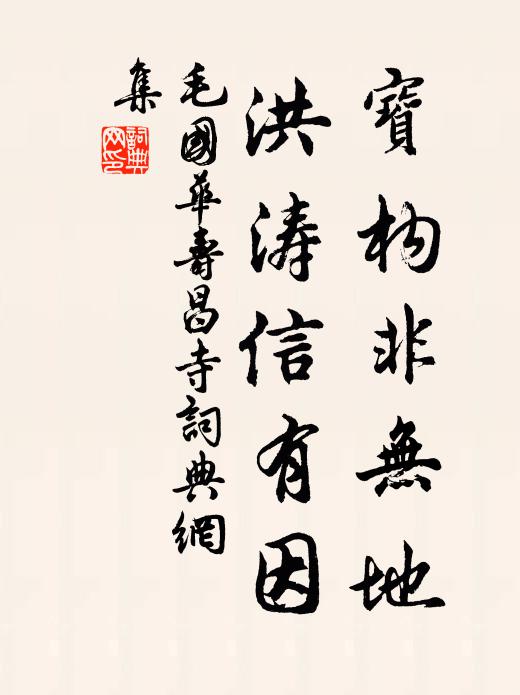 寶构非無地
洪濤信有因
毛國華壽昌寺詞典網
集
詞典網印